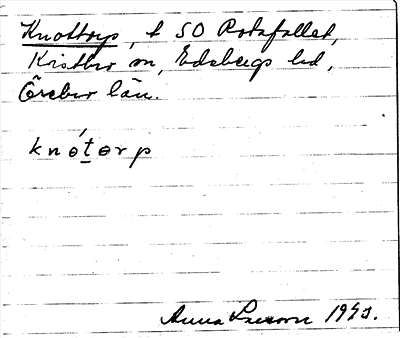 Knottorp, t SO Rotafallet,
Kvistbro sn, Edsbergs hd,
Örebro län.
knó̀ṯɵrp
Anna Larsson 1943.